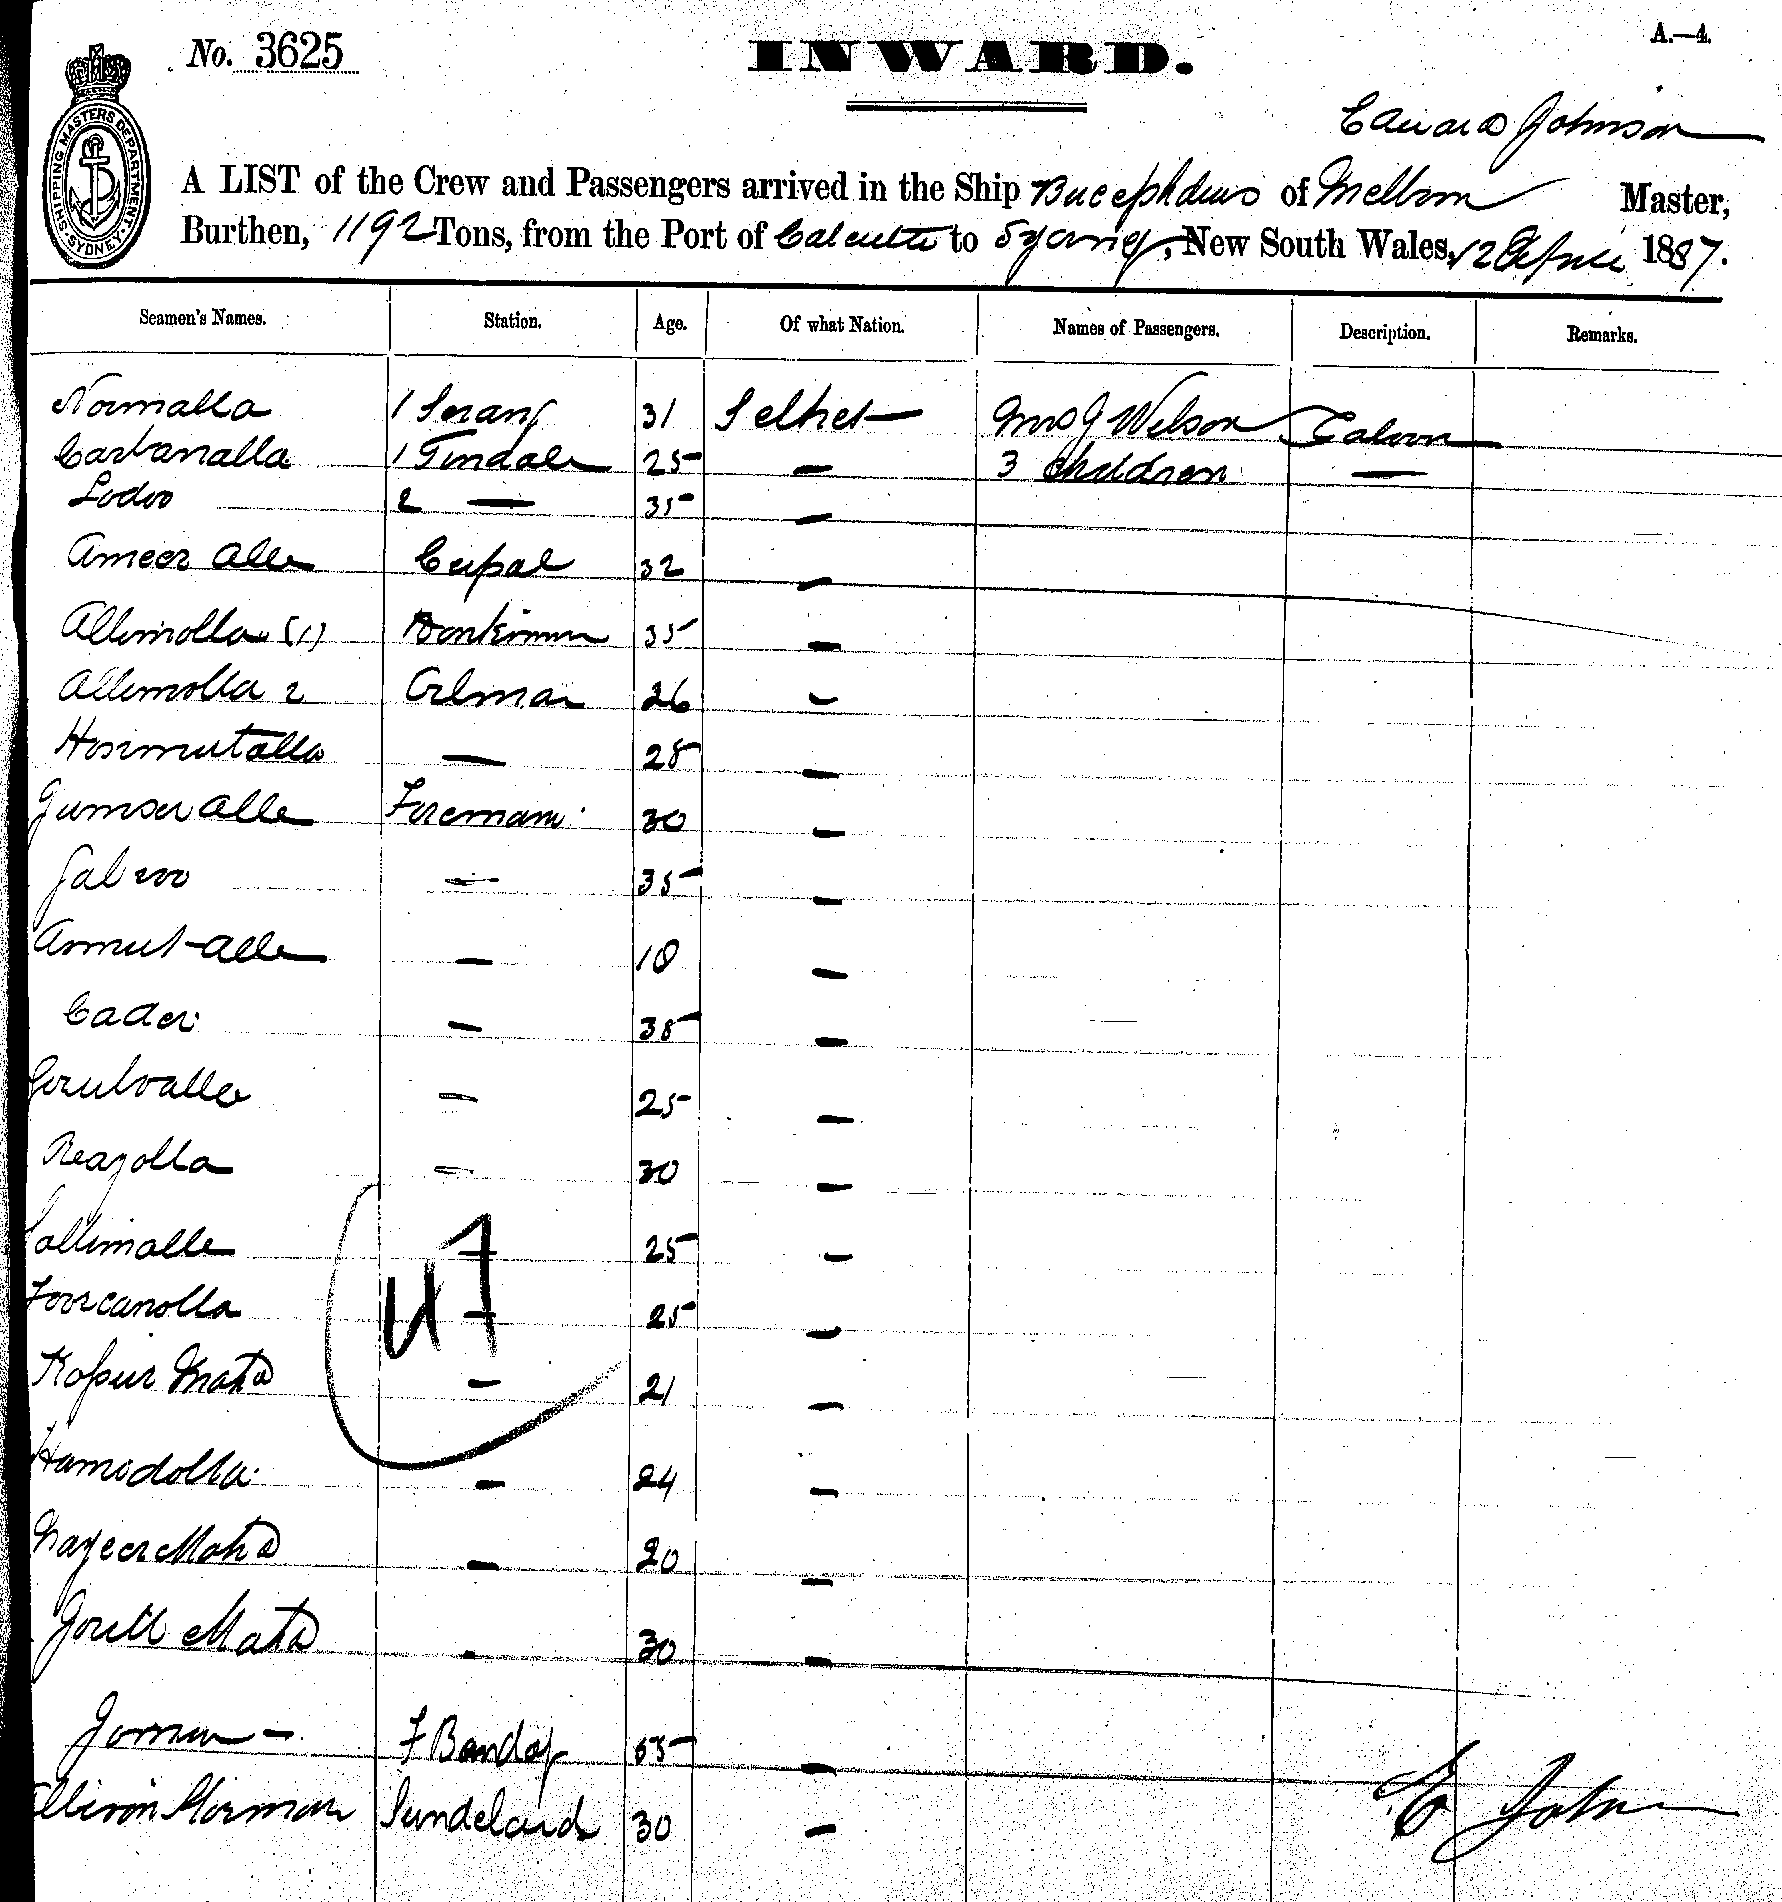 No. 3625
INWARD.
A.—4.
SHIPPING MASTERS DEPARTMENT SYDNEY
Edward Johnson
A LIST of the Crew and Passengers arrived in the Ship Bucephalus of Melbrn Master,
Burthen, 1192 Tons, from the Port of Calcutta to Sydney, New South Wales, 12 April 1887.
Seamen's Names. Station. Age. Of what Nation. Names of Passengers. Description. Remarks.
Normalla 1 Serang 31 Selhet Mrs J Wilson Saloon
Carbanalla 1 Tindale 25 — 3 Children —
Lodoo 2 — 35 —
Ameer Alle 32 —
Allimolla (1) 35 —
Allimolla 2 Oilman 26 —
Hosimutalla — 28 —
Jumser Alle Foreman 30 —
Jabroo — 35 —
Armut Alle — 18 —
Cader — 35 —
— 25 —
Reazolla — 30 —
— 25 —
Foorcanolla — 25 —
47
Kopur Mahd — 21 —
Hamedolla — 24 —
Nazeer Mahd — 20 —
Mahd — 30 —
Joman — F Bandoy 55 —
30 —
E John